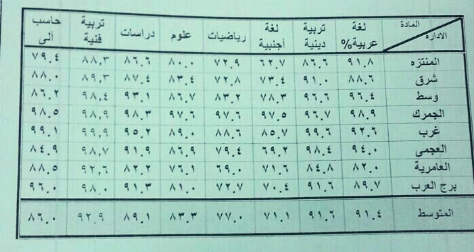 المادة لغة تربية لغة رياضيات علوم دراسات تربية حاسب
الادارة عربية% دينية أجنبية فنية آلى
المنتزه ٩١.٨ ٨٦.٦ ٦٢.٧ ٧٢.٩ ٨٠.٠ ٨٦.٦ ٨٨,٣ ٧٩.٤
شرق ٨٨.٦ ٩١.٠ ٧٣.٤ ٧٢.٨ ٨٣.٤ ٨٧.٤ ٨٩.٣ ٨٨.٠
وسط ٩٦.٤ ٩٦.٦ ٧٨.٣ ٨٣.٢ ٨٦.٧ ٩٣.١ ٩٨.٤ ٨٦.٢
الجمرك ٩٨.٩ ٩٦.٧ ٩٧.٥ ٩٧.٦ ٩٧.٦ ٩٨.٣ ٩٨.٩ ٩٨.٥
غرب ٩٢.٦ ٩٩.٦ ٨٥.٧ ٨٨.٦ ٨٩.٠ ٩٥.٢ ٩٩.٩ ٩٩.١
العجمى ٩٤.٠ ٩٨.٤ ٦٩.٢ ٧٩.٤ ٨٦.٩ ٩١.٩ ٩٨,٧ ٨٤.٩
العامرية ٨٢.٠ ٨٤.٨ ٧١.٦ ٦٩.٠ ٧٦.١ ٨٢.٢ ٩٢.٦ ٨٨.٥
برج العرب ٨٩.٧ ٩١.٦ ٧٠.٤ ٧٢.٧ ٨١.٠ ٩١.٣ ٩٨.٠ ٩٦.٠
المتوسط ٩١.٤ ٩١.٦ ٧١.١ ٧٧.٠ ٨٣.٣ ٨٩.١ ٩٢.٩ ٨٦.٠